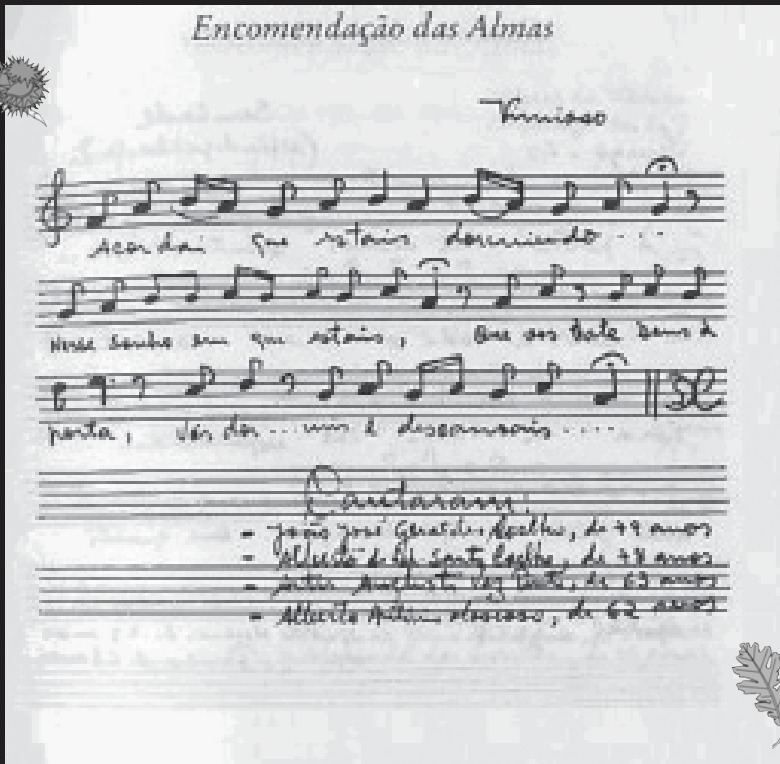 Encomendação das Almas
Vimioso
Acordai que estais dormindo ....
Nesse sonho em que estais, Que vos bate Deus à
porta, Vós dor...mis e descansais ....
DC
Cantaram:
- João José Geraldes Coelho, de 79 anos
- Alberto Coelho, de 48 anos
- Augusto Vaz, de 63 anos
- Alberto, de 62 anos